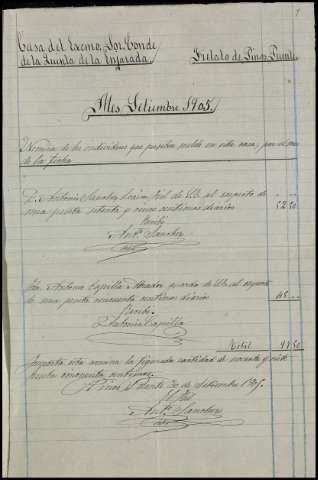 7
Casa del Excmo. Sor. Conde
de la Quinta de la Enjarada
Fielato de Pinos Puente
Mes Setiembre 1905.
Nomina de los individuos que perciben sueldo en esta casa, por el mes
de la fecha
D. Antonio Sanchez fiel de Vd. al respecto de
una peseta setenta y cinco centimos diarios 52.50
Recibí
Antº Sanchez
Antonio Capilla guarda de Vd. al respecto
de una peseta cincuenta centimos diarios 45
Recibí
Antonio Capilla
Total 97.50
Importa esta nomina la figurada cantidad de noventa y siete
cincuenta centimos.
Pinos Puente 30 de Setiembre 1905.
El Fiel
Antº Sanchez